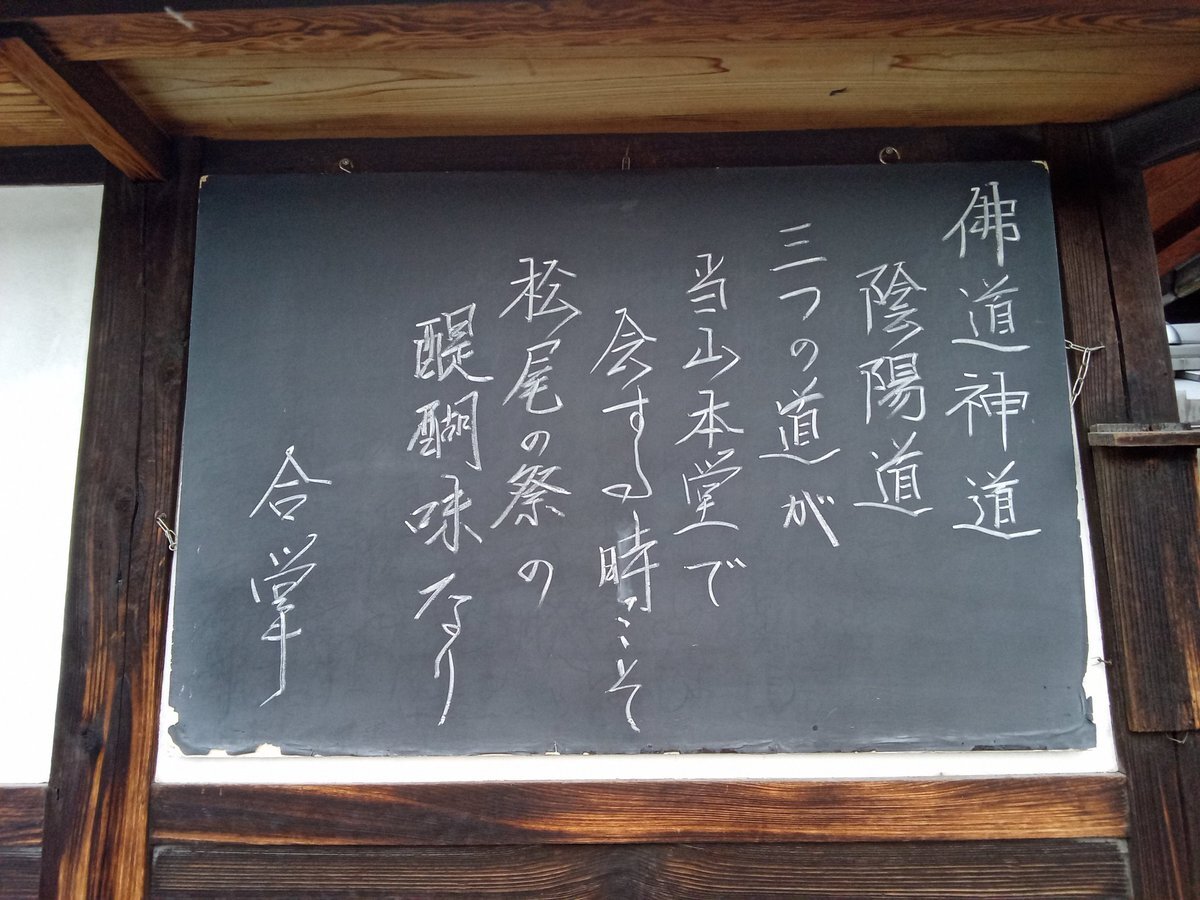 佛道神道
陰陽道
三つの道が
当山本堂で
会する時こそ
松尾の祭の
醍醐味なり
合掌